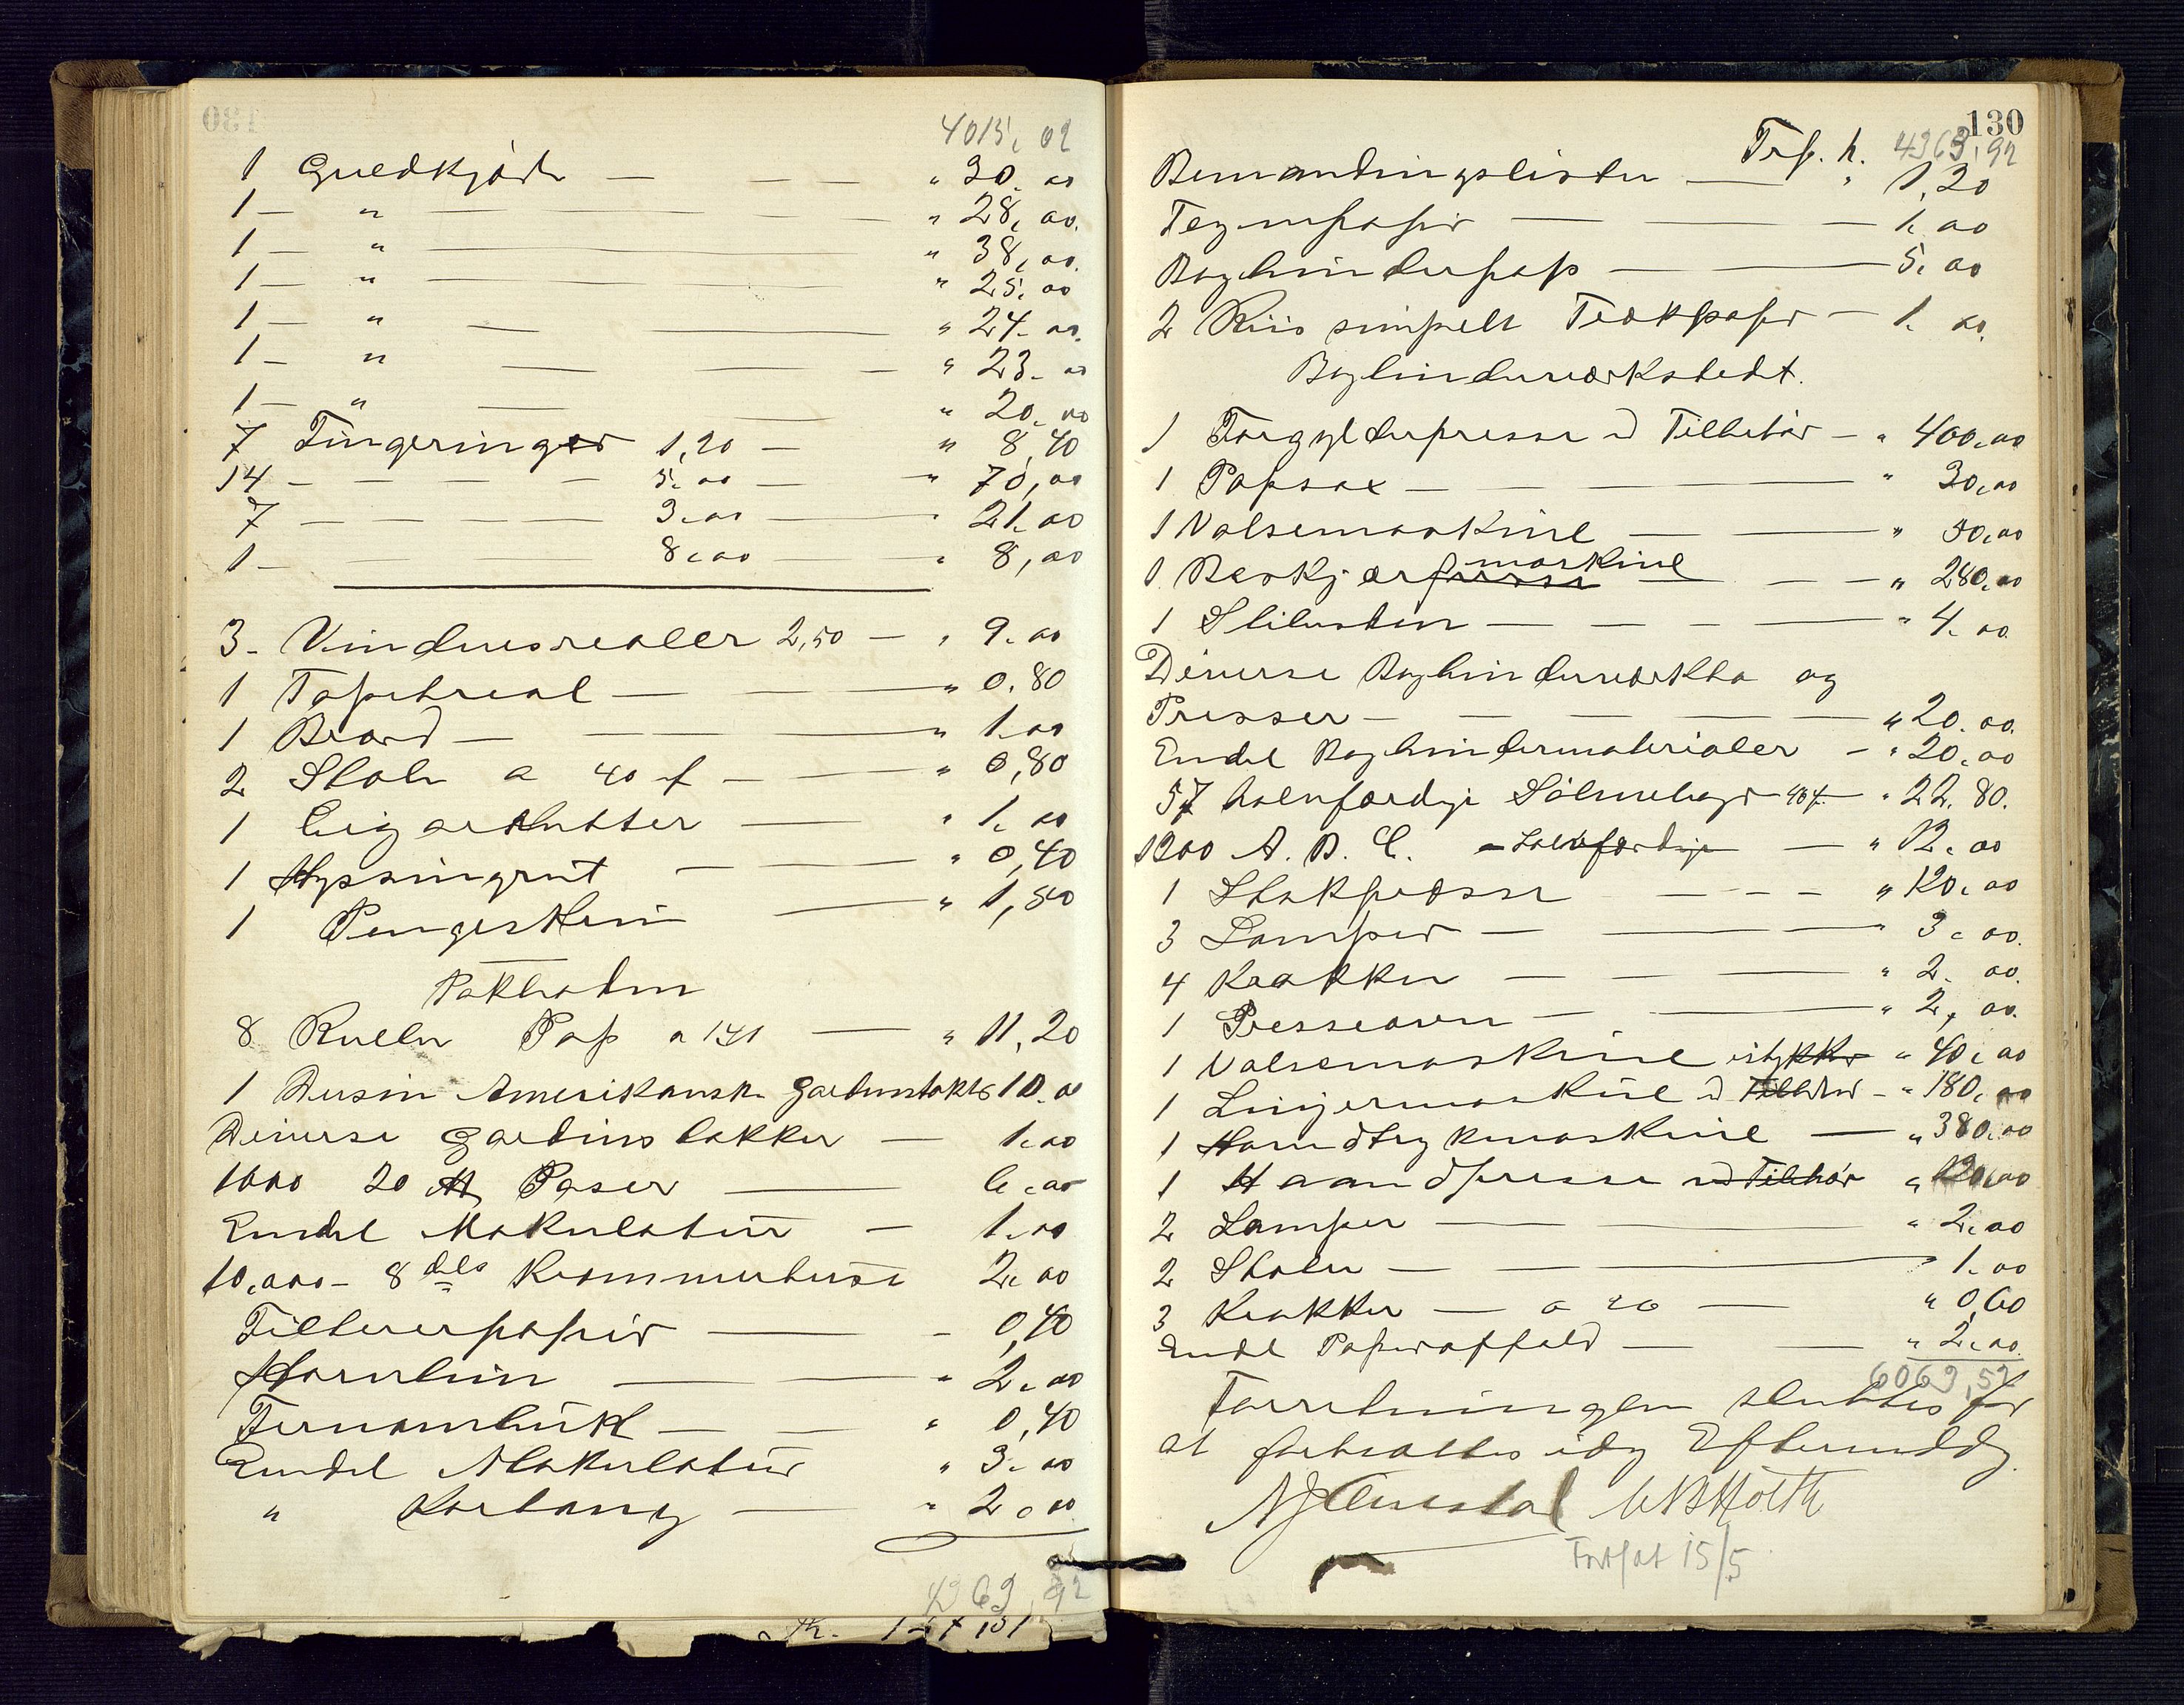 4015,02
1 Guldkjæde — — — " 30.00
1 — " — — — " 28,00
1 — " — — " 38,00
1 — " — — " 25,00
1 — " — — " 24.00
1 — " — — — " 23.00
1 — " — — " 20.00
7 Fingeringer 1,20 — " 8,40
14 — — — — 5,00 — " 70,00
7 — — — — 3.00 — " 21.00
1 — — 8,00 — " 8,00
3 - Vinduesrealer 2,50 — " 9.00
1 Tapetreal — — " 0.80
1 Brand — — " 1.00
2 Stole a 40 — — " 0,80
1 Cigarkutter — " 1.00
1 Hyssingrist — — " 0,40
1 Pengeskrin — " 1,50
Pakboden
8 Ruller Pap a 1,41 — " 11,20
1 Dusin Amerikansk Gardinstokke 10.00
Diverse Gardinstokker — 1.00
1000 20 Poser — 6.00
Endel Makulatur — 1.00
10,000 - 8 dels Kræmmerhuse 2,00
Filtrerpapir — - 0,40
Hornlim — — " 2.00
Fernambuk — — " 0,40
Endel Makulatur " 3.00
" Kartong — " 2.00
4363,92
130
Trsp. kr. 4363,92
Bemandingslister — " 1,20
Tegnepapir — — 1.00
Bogbinderpap — — 5.00
2 Riis simpelt Trykpapir — 1.00
Bogbinderværkstedt.
1 Forgylderpresse m Tilbehør — " 400.00
1 Papsax — — — " 30,00
1 Valsemaskine — — " 50,00
1 Beskjærpresse maskine — — " 280.00
1 Slibesten — — — — " 4.00
Diverse Bogbinderværktø og
Presser — — — — " 20.00
Endel Bogbindermaterialer — " 20,00
57 halvfærdige Salmebøger 40 — " 22.80.
1200 A. B. C. - halvfærdige — " 12.00
1 Stokpresse — — — " 120.00
3 Lamper — — — " 3.00
4 Krakker — — — " 2.00
1 Presseovn — — " 2,00
1 Valsemaskine istykker " 40,00
1 Linjermaskine m Tilbehør — " 180,00
1 Haandtrykmaskine — " 380.00
1 Haandpresse m Tilbehør " 120,00
2 Lamper — — " 2.00
2 Stoler — — 1.00
3 Krakker — a 20 — " 0,60
Endel Papiraffald — — " 2.00
6069,52
Forretningen sluttes for
at fortsættes idag Eftermiddag.
Fortsat 15/5